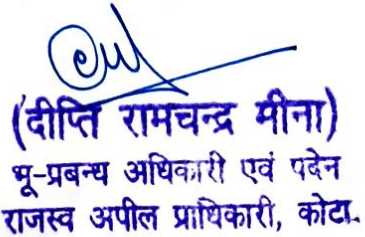 (दीप्ति रामचन्द्र मीना)
भू-प्रबन्ध अधिकारी एवं पदेन
राजस्व अपील प्राधिकारी, कोटा.